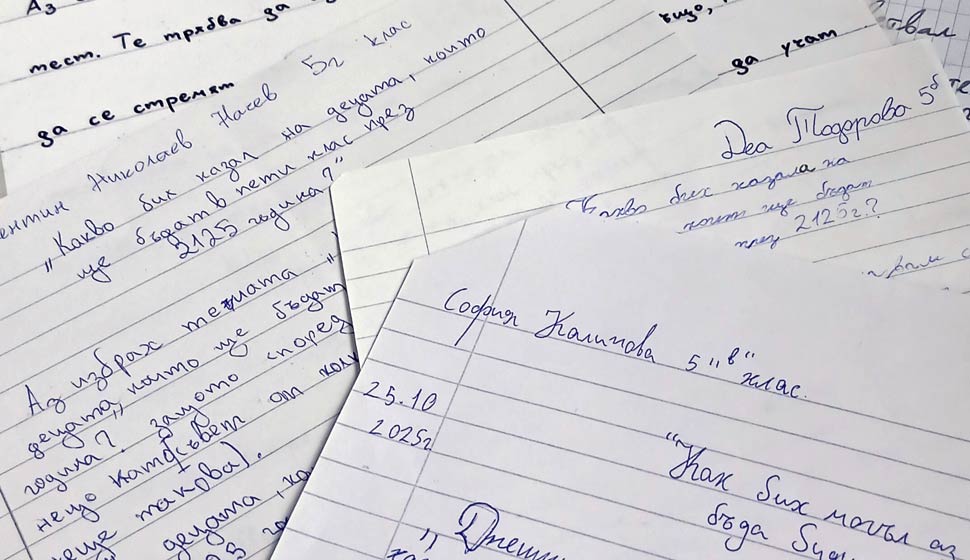 Аз
тест. Те трябва да
да се стремят
ъщо,
да учат
Николаев Насев 5г клас
„Какво бих казал на децата, които
ще бъдат в пети клас през
2125 година?"
Аз избрах темата „
децата, които ще бъдат
година? защото според
нещо като (съвет от
такова).
децата
Деа Тодорова 5б
Какво бих казала на
които ще бъдат
през 2125г?
София Калинова 5 „в"
клас.
25.10
2025г
"Как бих могъл аз
бъда
„